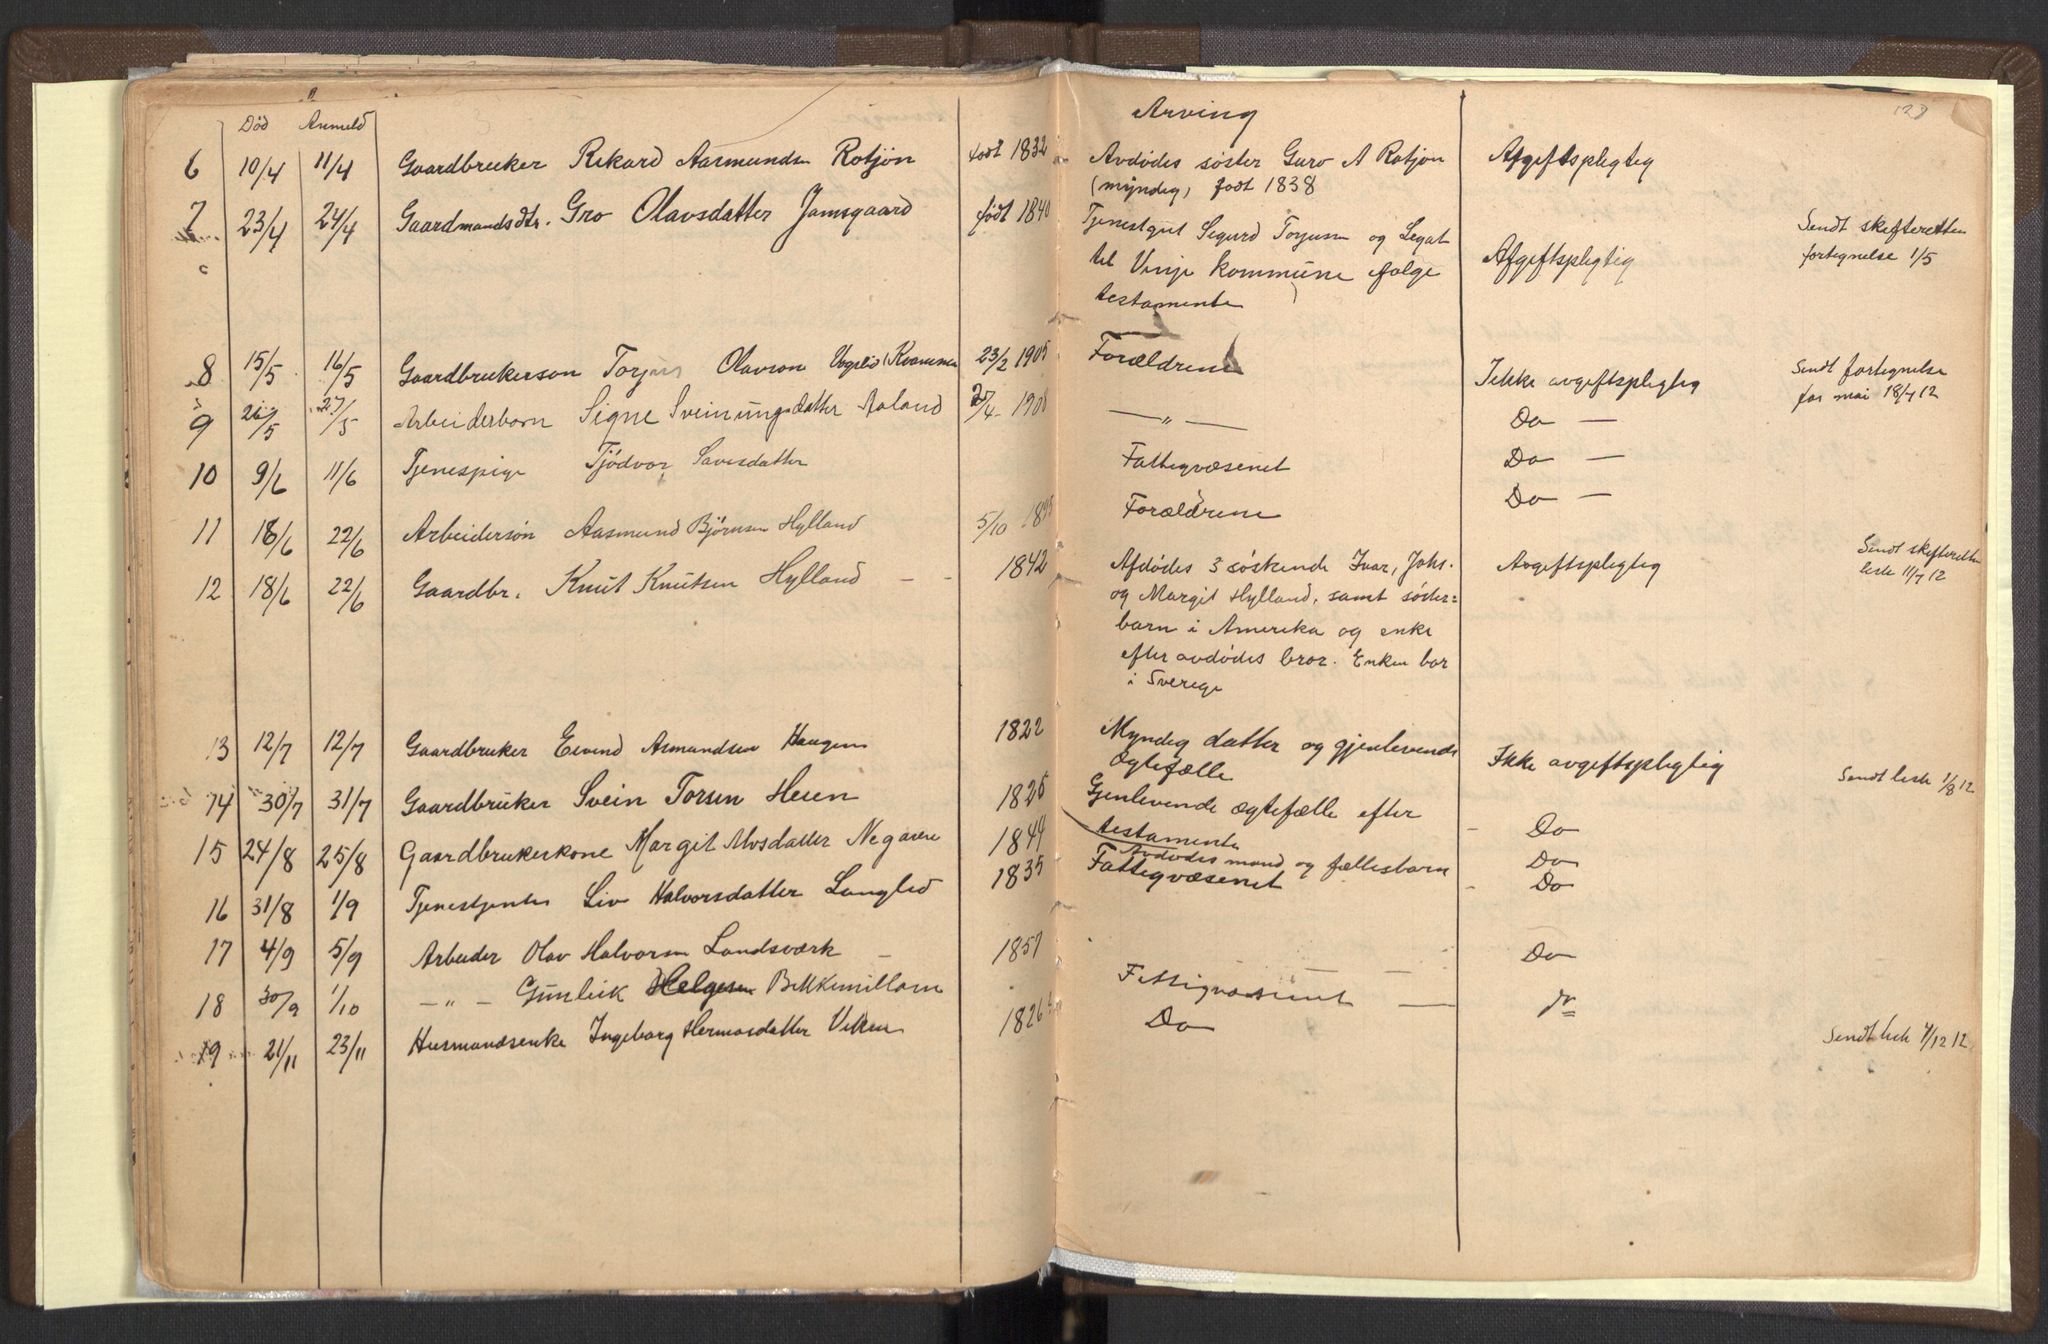 Død Anmeld Arving
6 10/4 11/4 Gaardbruker Rikard Aasmundsen Rotjøn født 1832 Avdødes søster Guro A Rotjøn Afgiftspligtig
(myndig) født 1838
7 23/4 24/4 Gaardmandsdtr. Gro Olavsdatter Jamsgaard født 1840 Tjenestgut Sigurd Torjusen og Legat
til Vinje kommune følge Afgiftspligtig Sendt skifteretten
testamente fortegnelse 1/5
8 15/5 16/5 Gaardbrukerson Torjus Olavson Vogslid (Kvammen 23/2 1905 Forældrene Ikke avgiftspligtig Sendt fortegnelse
for mai 18/7 12
9 26/5 27/5 Arbeiderbarn Signe Sveinungsdatter Aaland 25/4 - 1908 — " — Do —
10 9/6 11/6 Tjenespige Tjødvor Savesdatter Fattigvæsenet Do —
11 18/6 22/6 Arbeidersøn Aasmund Bjørnsen Hylland 5/10 Forældrene Do —
12 18/6 22/6 Gaardbr. Knut Knutsen Hylland - - 1842 Afdødes 3 søskende Ivar, Johs. Avgiftspligtig Sendt skifteretten
liste 11/7 12
og Margit Hylland, samt søster=
barn i Amerika og enke
efter avdødes bror. Enken bor
i Sverige
13 12/7 12/7 Gaardbruker Eivind Asmundsen Haugen 1822 Myndig datter og gjenlevende Ikke avgiftspligtig
Ægtefælle
14 30/7 31/7 Gaardbruker Svein Torsen Heien 1826 Gjenlevende ægtefælle efter - Do Sendt liste 1/8 12
testamente
15 24/8 25/8 Gaardbrukerkone Margit Alvsdatter Negarden 1844 Avdødes mand og fællesbarn Do
16 31/8 1/9 Tjenestjente Liv Halvorsdatter Langlid 1835 Fattigvæsenet - Do
17 4/9 5/9 Arbeider Olav Halvorsen Landsværk - 1857 — — — Do
18 30/9 1/10 — " — Gunleik Helgesen Bekkemillom Fattigvæsenet —
19 21/11 23/11 Husmandsenke Ingeborg Hermosdatter Viken 1826 Do Sendt liste 7/12 12